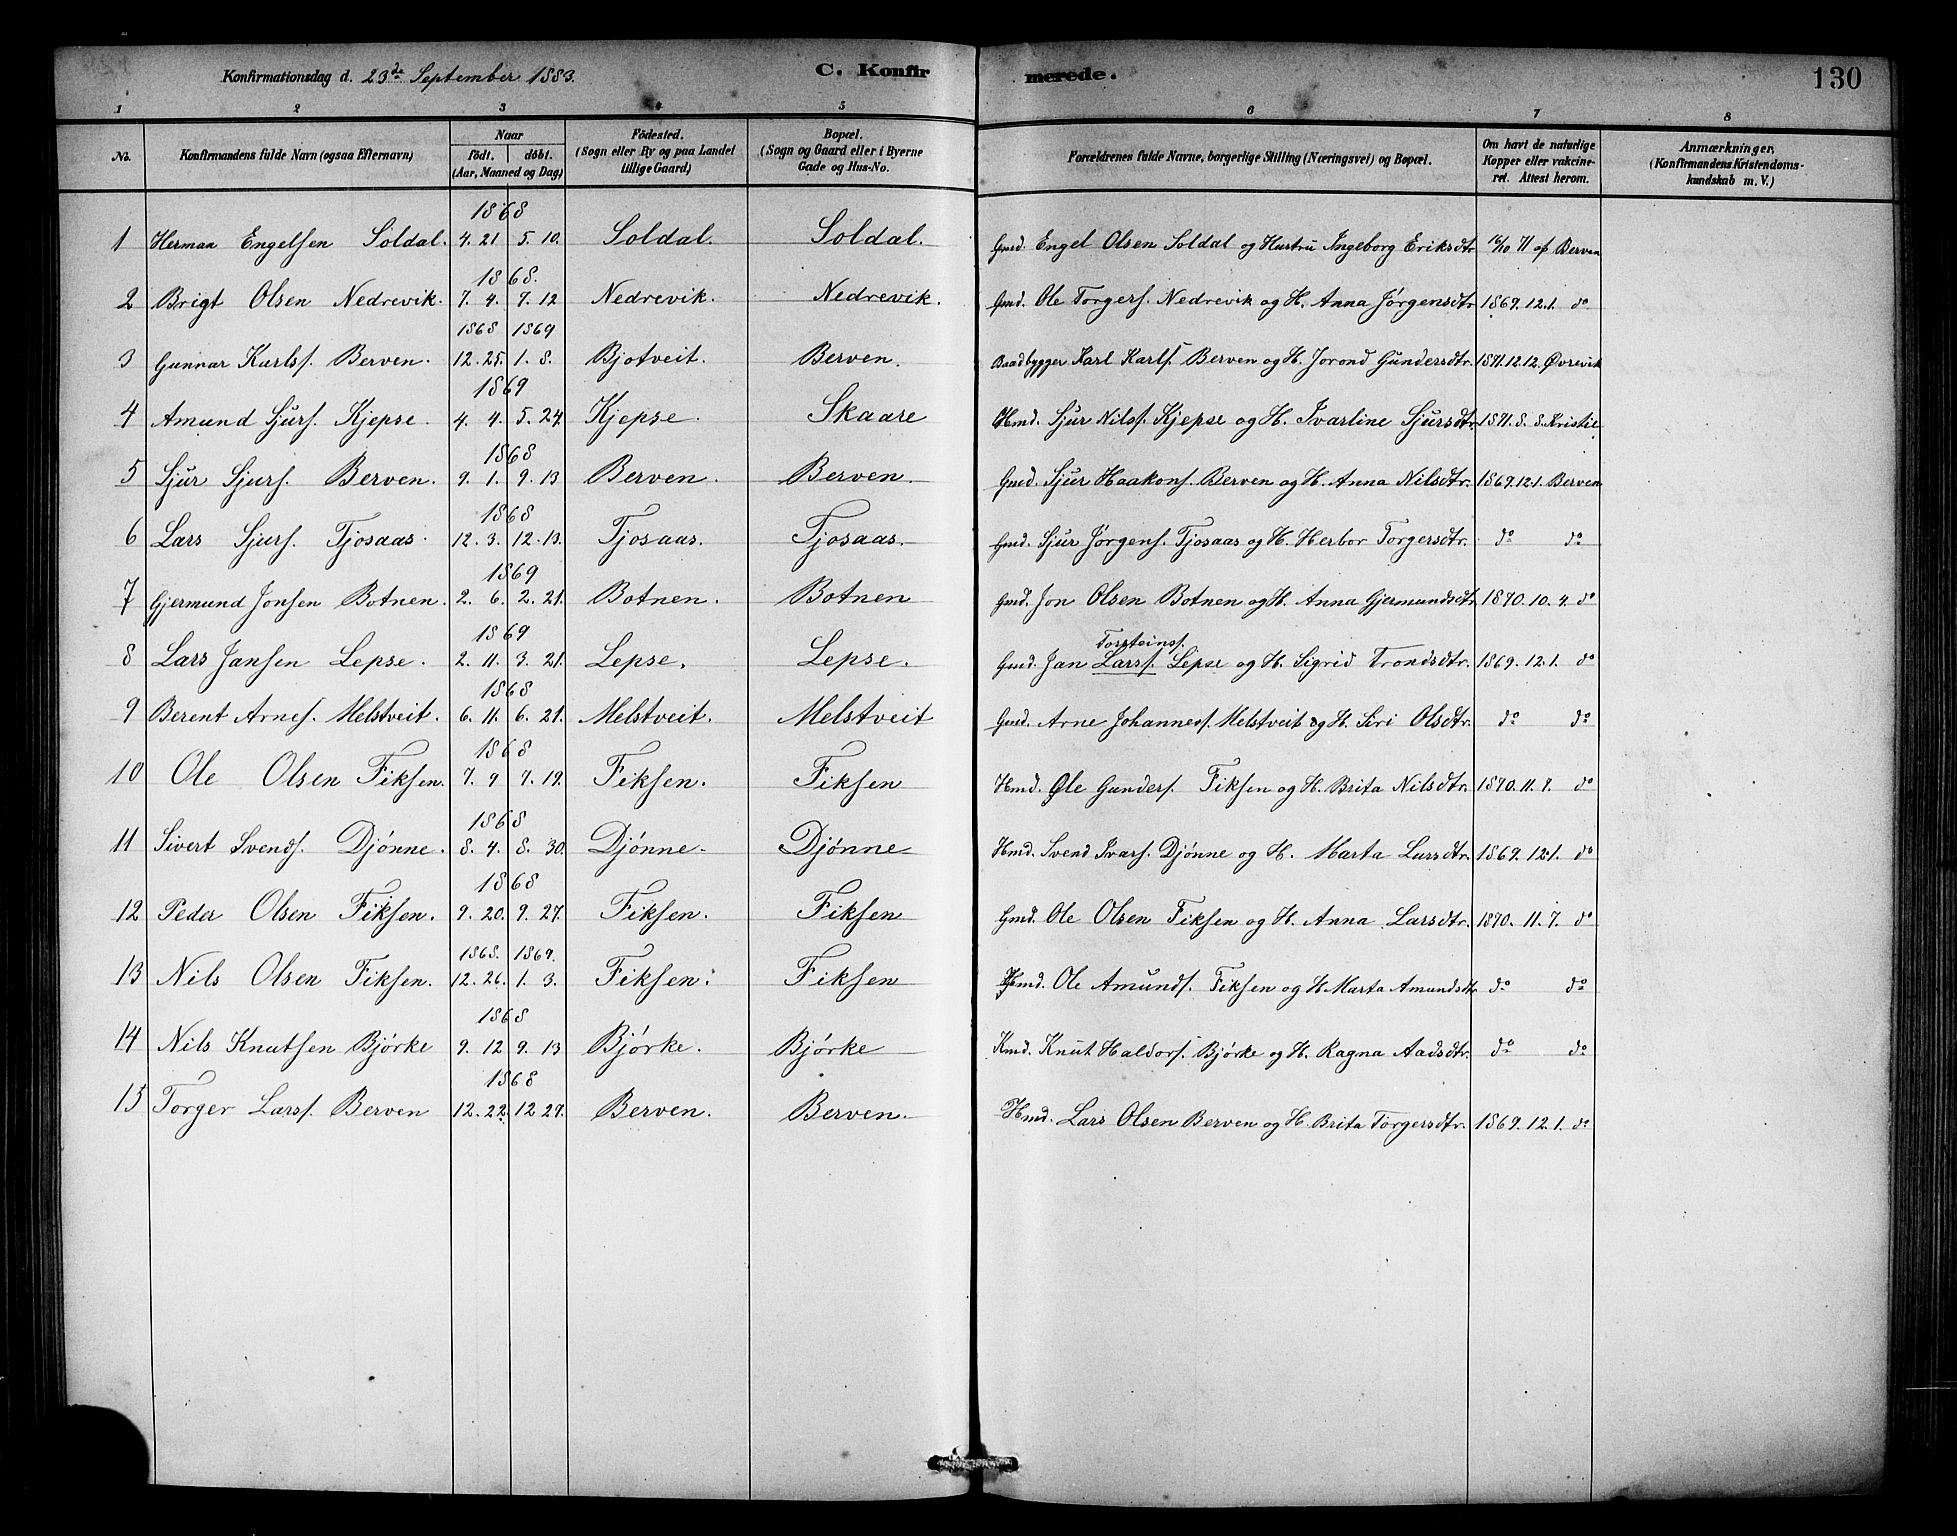 Konfirmationsdag d. 23de September 1883. C. Konfirmerede. 130
1 2 3 4 5 6 7 8
No. Konfirmandens fulde Navn (ogsaa Efternavn) Naar födt. döbt. (Aar, Maaned og Dag) Födested. (Sogn eller By og paa Landet tillige Gaard) Bopæl. (Sogn og Gaard eller i Byerne Gade og Hus-No. Forældrenes fulde Navne, borgerlige Stilling (Næringsvei) og Bopæl. Om havt de naturlige Kopper eller vakcineret. Attest herom. Anmærkninger, (Konfirmandens Kristendomskundskab m. V.)
1868
1 Herman Engelsen Soldal. 4. 21 5. 10. Soldal. Soldal. Gmd. Engel Olsen Soldal og Hustru Ingeborg Eriksdtr 16/10 71 af Berven
1868.
2 Brigt Olsen Nedrevik. 7. 4. 7. 12 Nedrevik. Nedrevik. Gmd. Ole Torgers. Nedrevik og H. Anna Jørgensdtr 1869. 12. 1. do
1868 1869
3 Gunnar Karls. Berven. 12. 25. 1. 8. Bjotveit. Berven. Baadbygger Karl Karls. Berven og H. Jorond Gundersdtr. 1871. 12. 12. Øvrevik
1869
4 Amund Sjurs. Kjepse. 4. 4. 5. 24. Kjepse. Skaare Hmd. Sjur Nilss. Kjepse og H. Ivarline Sjursdtr. 1871. 8. 8. Kristie
1868
5 Sjur Sjurs. Berven. 9. 1. 9. 13 Berven. Berven. Gmd. Sjur Haakons. Berven og H. Anna Nilsdtr. 1869. 12. 1. Berven
1868
6 Lars Sjurs. Tjosaas. 12. 3. 12. 13. Tjosaas. Tjosaas. Gmd. Sjur Jørgens. Tjosaas og H. Herbor Torgersdtr. do do
1869
7 Gjermund Jonsen Botnen. 2. 6. 2. 21. Botnen. Botnen Gmd. Jon Olsen Botnen og H. Anna Gjermundsdtr 1870. 10. 4. do
1869 Torsteinss.
8 Lars Jansen Lepse. 2. 11. 3. 21. Lepse. Lepse. Gmd. Jan Larss. Lepse og H. Sigrid Trondsdtr. 1869. 12. 1. do
1868
9 Berent Arnes. Melstveit. 6. 11. 6. 21. Melstveit. Melstveit Gmd. Arne Johanness. Melstveit og H. Siri Olsdtr. do do
1868
10 Ole Olsen Fiksen. 7. 9 7. 19. Fiksen. Fiksen Hmd. Ole Gunders. Fiksen og H. Brita Nilsdtr. 1870. 11. 7. do
1868
11 Sivert Svends. Djønne. 8. 4. 8. 30. Djønne. Djønne Hmd. Svend Ivars. Djønne og H. Marta Larsdtr. 1869. 12. 1. do
1868
12 Peder Olsen Fiksen. 9. 20. 9. 27. Fiksen. Fiksen Gmd. Ole Olsen Fiksen og H. Anna Larsdtr. 1870. 11. 7. do
1868. 1869.
13 Nils Olsen Fiksen. 12. 26. 1. 3. Fiksen. Fiksen Hmd. Ole Amunds. Fiksen og H. Marta Amundsdtr do do
1868
14 Nils Knutsen Bjørke 9. 12 9. 13 Bjørke. Bjørke Kmd. Knut Haldors. Bjørke og H. Ragna Aadsdtr. do do
1868
15 Torger Larss. Berven 12. 22. 12 27. Berven. Berven. Hmd. Lars Olsen Berven og H Brita Torgersdtr. 1869. 12. 1. do